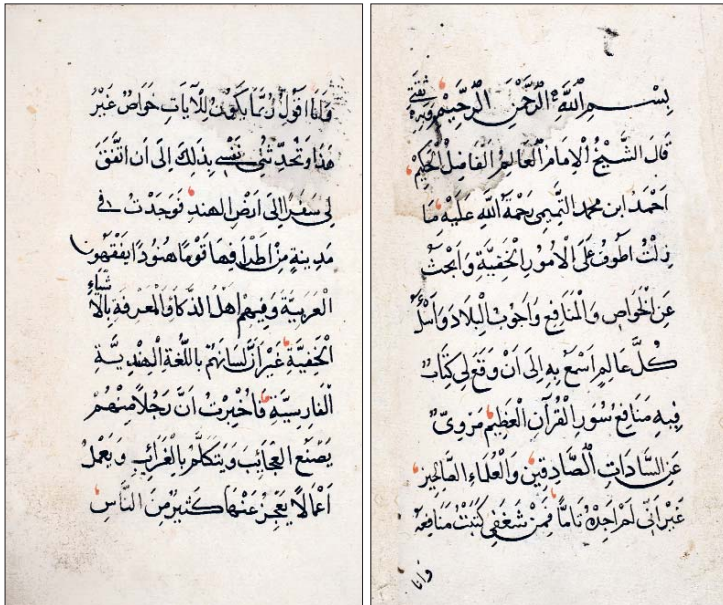 بِسْمِ اللَّهِ الرَّحْمَنِ الرَّحِيْمِ وَبِهِ ثِقَتِي
قَالَ الشَّيْخُ الْاِمَامُ الْعَالِمُ الْفَاضِلُ الْحَكِيْمُ
اَحْمَدُ ابن محمد التَّمِيمِي رَحْمَةُ اللَّهِ عَلَيْهِ مَا
زِلْتُ اَطُوفُ عَلَى الْاُمُورِ الْخَفِيَّةِ وَابْحَثُ
عَنِ الْخَوَاصِ وَالْمَنَافِعِ وَاَجُوبُ الْبِلَادَ وَاَسْاَلُ
كُلَّ عَالِمٍ اَسْمَعُ بِهِ اِلَى اَنْ وَقَعَ لِي كِتَابٌ
فِيهِ مَنَافِعُ سُوَرِ الْقُرْآنِ الْعَظِيْمِ مَرْوِيٌّ
عَنِ السَّادَاتِ الصَّادِقِينَ وَالْعُلَمَاءِ الصَّالِحِينَ
غَيْرَ اَنِّي لَمْ اَجِدْهُ تَامًّا فَمِنْ شَغَفِي كَتَبْتُ مَنَافِعَهُ
وانا
وَاَنَا اقُولُ رُبَّمَا يَكُونُ لِلْآيَاتِ خَوَاصُ غَيْرُ
هَذَا وَتُحَدِّثُنِي نَفْسِي بِذَلِكَ اِلَى اَنِ اتَّفَقَ
لِي سَفَرٌ اِلَى اَرْضِ الهِنْدِ فَوَجَدْتُ فِي
مَدِينَةٍ مِنْ فِيهَا قَوْمًا هُنُودًا يَفْقَهُونَ
الْعَرَبِيَّةَ وَفِيهِمْ اَهْلُ الذَّكَاءِ وَالْمَعْرِفَةِ بِالْاَشْيَاءِ
الْخَفِيَّةِ غَيْرَ اَنَّ لِسَانَهُمْ بِاللُّغَةِ الْهِنْدِيَّةِ
الْفَارِسِيَّةِ فَاُخْبِرْتُ اَنَّ رَجُلًا مِنْهُمْ
يَصْنَعُ الْعَجَائِبَ وَيَتَكَلَّمُ بِالْغَرَائِبِ وَيَعْمَلُ
اَعْمَالًا يَعْجِزُ عَنْهَا كَثِيرٌ مِنَ النَّاسِ